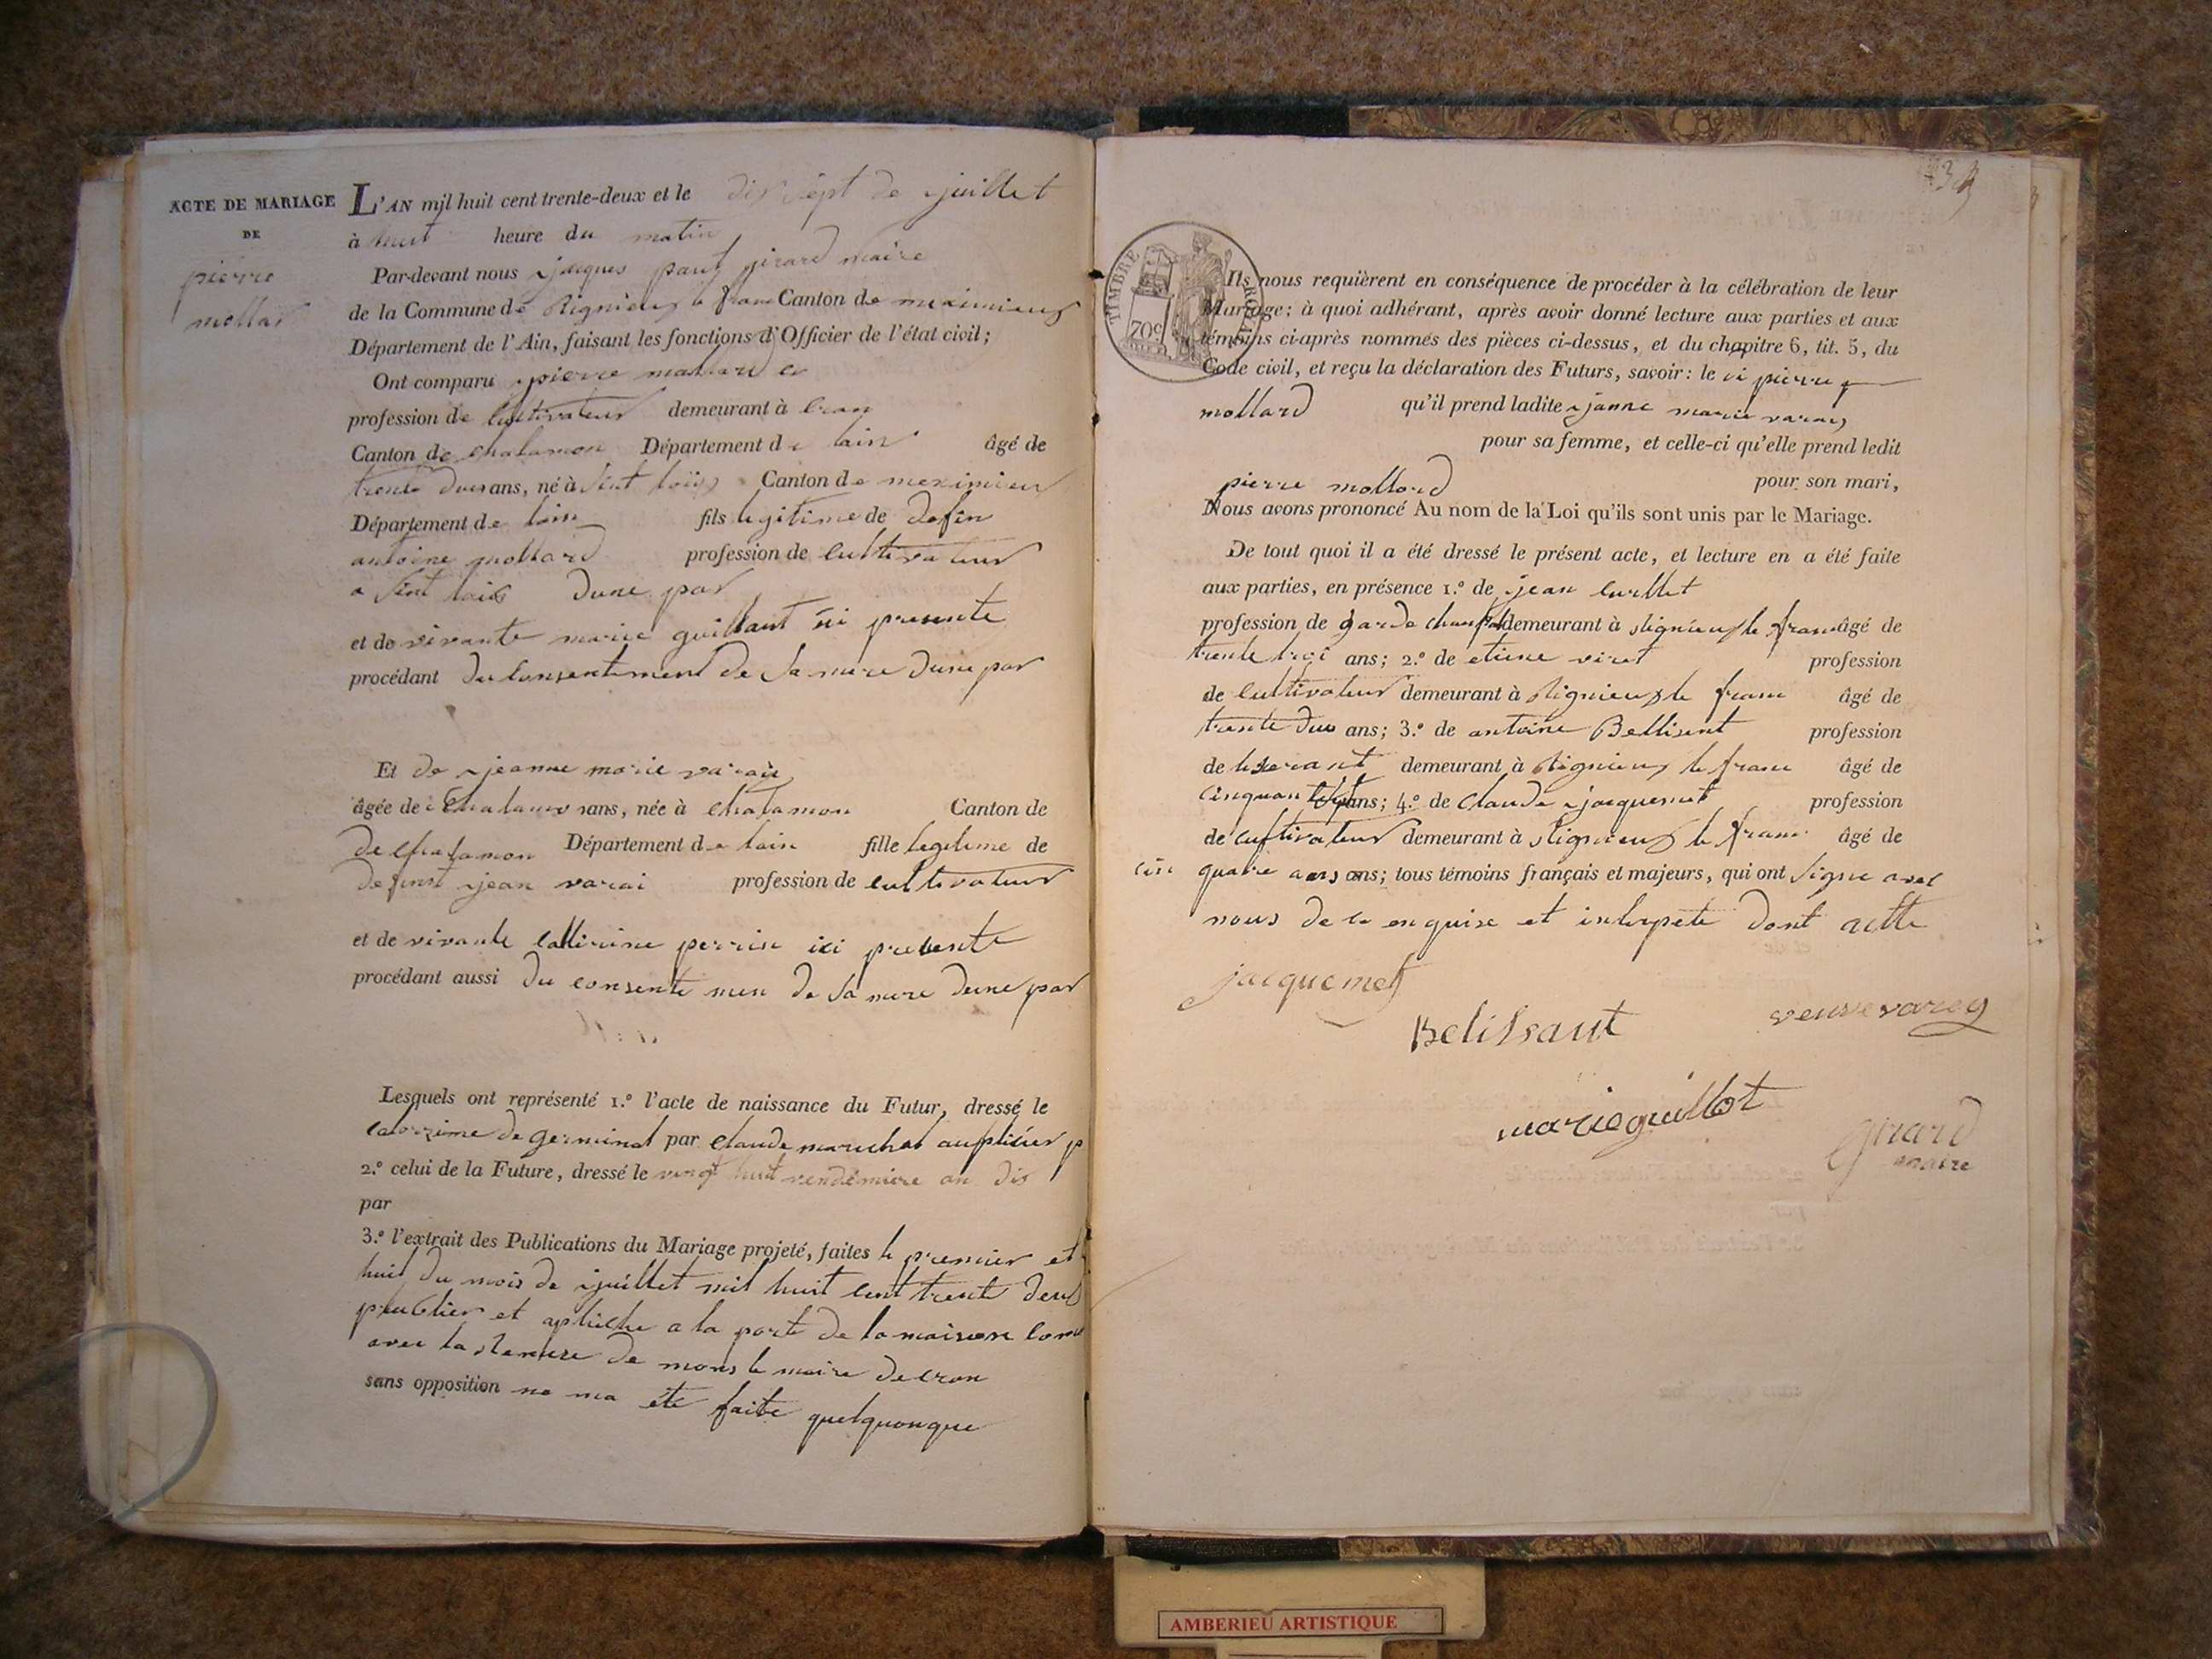 ACTE DE MARIAGE
DE
pierre
mollar
L'AN mil huit cent trente-deux et le dix sept de juillet
à huit heure du matin
Par-devant nous jacques girard maire
de la Commune de Rignieux le franc Canton de meximieux
Département de l'Ain, faisant les fonctions d'Officier de l'état civil;
Ont comparu pierre mollard
profession de cultivateur demeurant à cran
Canton de chalamon Département de lain âgé de
trente ans, né à Canton de meximieu
Département de lain fils legitime de defin
antoine mollard profession de cultivateur
a dune par
et de vivante marie guillaut ici presente
procédant du consentiment de sa mere dune par
Et de jeanne marie varai
âgée de ans, née à chalamon Canton de
de chalamon Département de lain fille legitime de
defunt jean varai profession de cultivateur
et de vivante catterine perrin ici presente
procédant aussi du consente men de sa mere dune par
Lesquels ont représenté 1.º l'acte de naissance du Futur, dressé le
de germinal par claude marichal
2.º celui de la Future, dressé le vingt huit vendémiere an dis
par
3.º l'extrait des Publications du Mariage projeté, faites le premier et
huit du mois de juillet mil huit cent trente deux
publier et a la porte de la maison
avec la de mons le maire de cran
sans opposition ne ma été faite quelquonque
TIMBRE ROYAL
70 c
Ils nous requièrent en conséquence de procéder à la célébration de leur
Mariage; à quoi adhérant, après avoir donné lecture aux parties et aux
témoins ci-après nommés des pièces ci-dessus, et du chapitre 6, tit. 5, du
Code civil, et reçu la déclaration des Futurs, savoir: le pierre
mollard qu'il prend ladite janne marie varai
pour sa femme, et celle-ci qu'elle prend ledit
pierre mollard pour son mari,
Nous avons prononcé Au nom de la Loi qu'ils sont unis par le Mariage.
De tout quoi il a été dressé le présent acte, et lecture en a été faite
aux parties, en présence 1.º de jean
profession de garde demeurant à Rignieux le franc âgé de
trente troi ans; 2.º de etiene viret profession
de cultivateur demeurant à Rignieux le franc âgé de
trente ans; 3.º de antoine Bellisent profession
de demeurant à Rignieux le franc âgé de
cinquante ans; 4.º de claude jacquemet profession
de cultivateur demeurant à Rignieux le franc âgé de
ans; tous témoins français et majeurs, qui ont signe avec
nous de ce et dont actte
jacquemet
Belissaut
veuve varey
marie guillot
girard
maire
AMBERIEU ARTISTIQUE